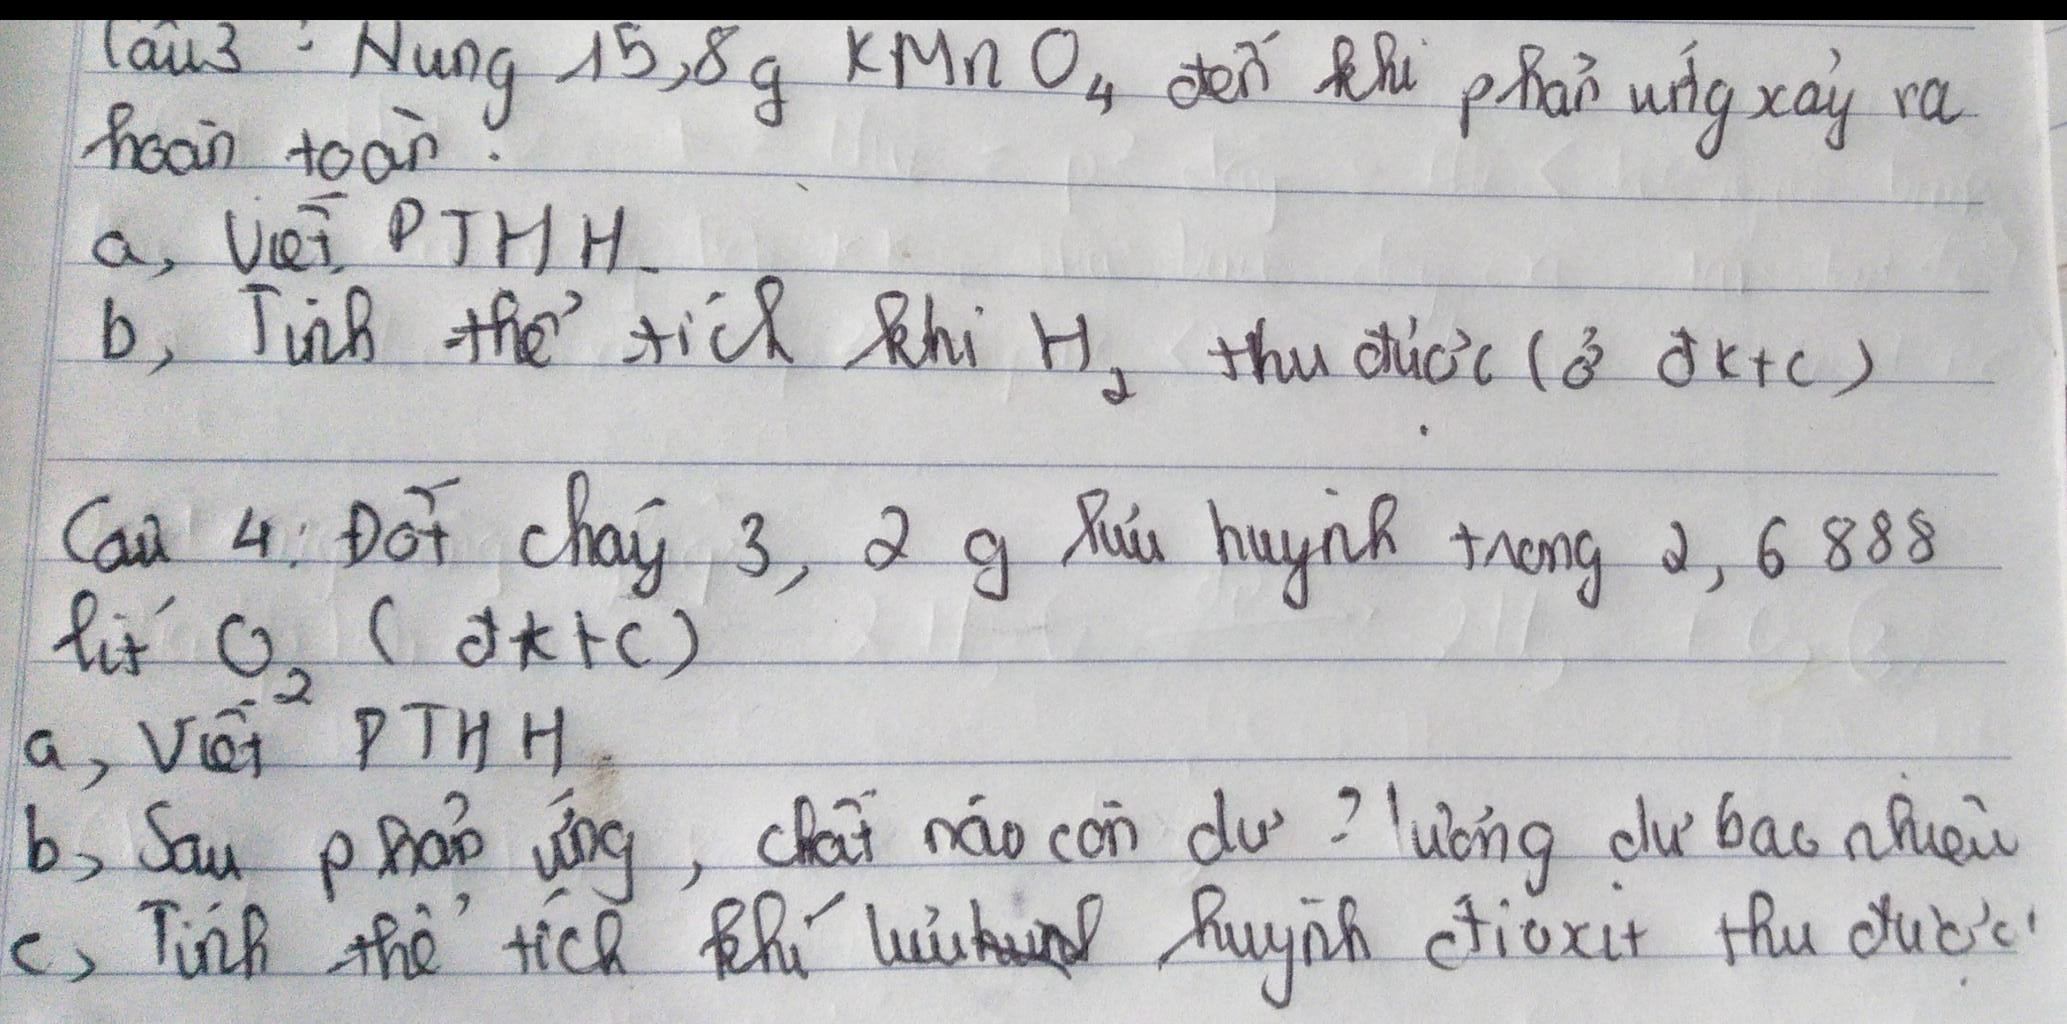 Câu3: Nung 15,8g KMnO₄ đến khi phản ứng xảy ra
hoàn toàn.
a, Viết PTHH.
b, Tính thể tích khí H₂ thu được (ở đktc)
Câu 4: Đốt cháy 3,2g lưu huỳnh trong 2,6888
lít O₂ (đktc)
a, Viết PTHH.
b, Sau phản ứng, chất nào còn dư? lượng dư bao nhiêu
c, Tính thể tích khí lưu huỳnh đioxit thu được